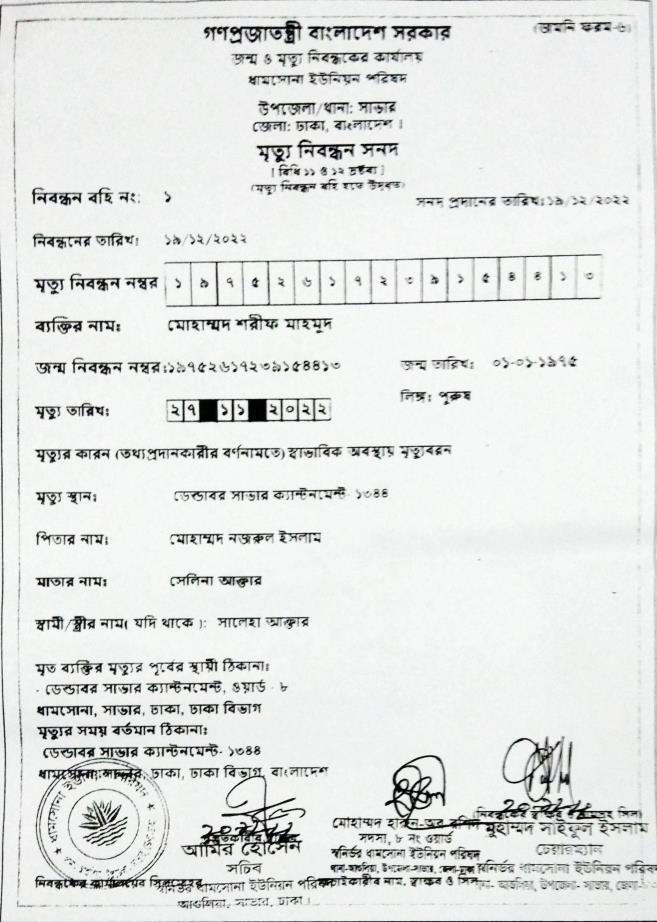 (জামনি ফরম-৬)
গণপ্রজাতন্ত্রী বাংলাদেশ সরকার
জন্ম ও মৃত্যু নিবন্ধকের কার্যালয়
ধামসোনা ইউনিয়ন পরিষদ
উপজেলা/থানা: সাভার
জেলা: ঢাকা, বাংলাদেশ।
মৃত্যু নিবন্ধন সনদ
[ বিধি ১১ ও ১২ দ্রষ্টব্য ]
(মৃত্যু নিবন্ধন বহি হতে উদ্ধৃত)
নিবন্ধন বহি নং: ১
সনদ প্রদানের তারিখ:১৯/১২/২০২২
নিবন্ধনের তারিখ: ১৯/১২/২০২২
মৃত্যু নিবন্ধন নম্বর ১ ৯ ৭ ৫ ২ ৬ ১ ৭ ২ ৩ ৯ ১ ৫ ৪ ৪ ১ ৩
ব্যক্তির নাম: মোহাম্মদ শরীফ মাহমুদ
জন্ম নিবন্ধন নম্বর:১৯৭৫২৬১৭২৩৯১৫৪৪১৩ জন্ম তারিখ: ০১-০১-১৯৭৫
মৃত্যু তারিখ: ২৭ ১১ ২০২২ লিঙ্গ: পুরুষ
মৃত্যুর কারন (তথ্যপ্রদানকারীর বর্ণনামতে) স্বাভাবিক অবস্থায় মৃত্যুবরন
মৃত্যু স্থান: ডেন্ডাবর সাভার ক্যান্টনমেন্ট- ১৩৪৪
পিতার নাম: মোহাম্মদ নজরুল ইসলাম
মাতার নাম: সেলিনা আক্তার
স্বামী/স্ত্রীর নাম( যদি থাকে ): সালেহা আক্তার
মৃত ব্যক্তির মৃত্যুর পূর্বের স্থায়ী ঠিকানা:
- ডেন্ডাবর সাভার ক্যান্টনমেন্ট, ওয়ার্ড - ৮
ধামসোনা, সাভার, ঢাকা, ঢাকা বিভাগ
মৃত্যুর সময় বর্তমান ঠিকানা:
ডেন্ডাবর সাভার ক্যান্টনমেন্ট- ১৩৪৪
ধামসোনা, সাভার, ঢাকা, ঢাকা বিভাগ, বাংলাদেশ
আমির হোসেন
সচিব
স্বনির্ভর ধামসোনা ইউনিয়ন পরিষদ
আশুলিয়া, সাভার, ঢাকা।
মোহাম্মদ হারুন-অর রশিদ
সদস্য, ৮ নং ওয়ার্ড
স্বনির্ভর ধামসোনা ইউনিয়ন পরিষদ
মুহাম্মদ সাইফুল ইসলাম
চেয়ারম্যান
স্বনির্ভর ধামসোনা ইউনিয়ন পরিষদ